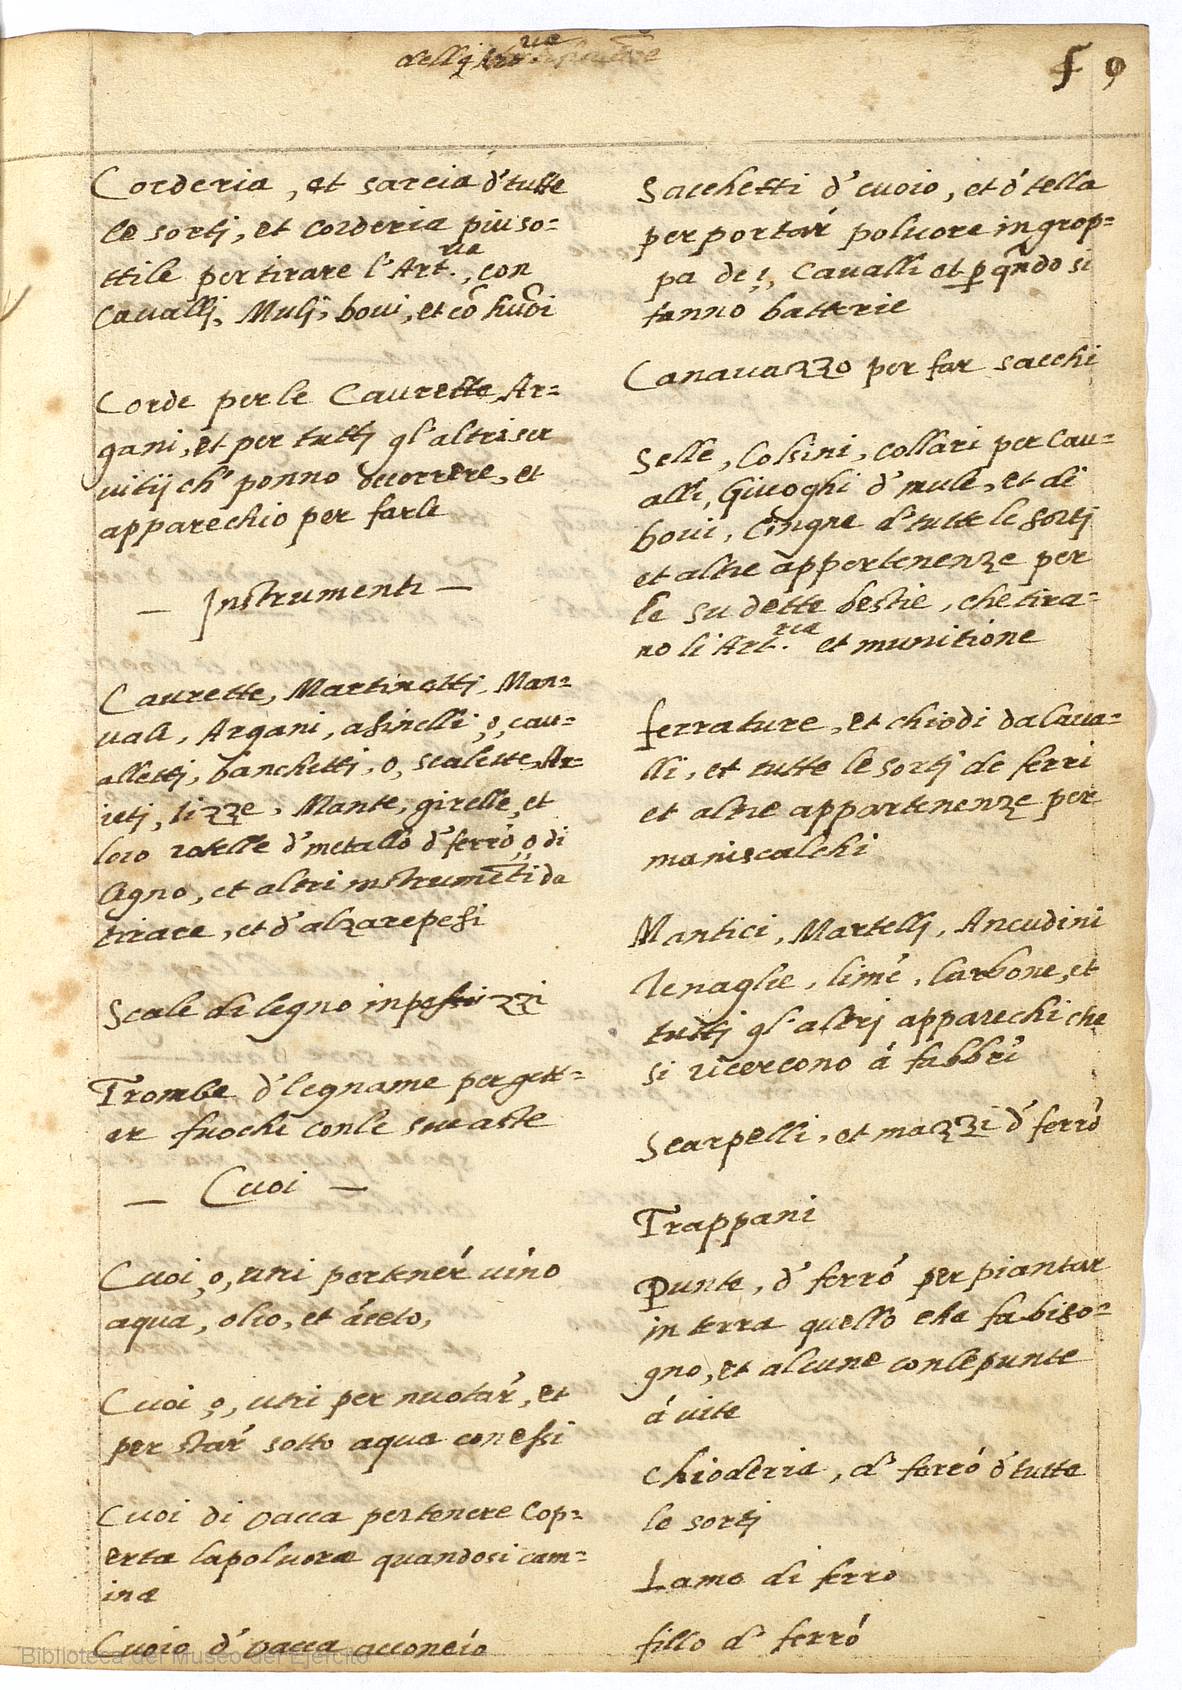 59
Corderia, et sarcia d' tutte
le sortj, et corderia piu so=
ttile per tirare l'Art.ria, con
Cauallj, Mulj, boui, et cõ huõi
Corde per le Caurette, Ar=
gani, et per tuttj gl' altri ser
uitij ch' ponno occorrere, et
apparechio per farle
— Instrumenti —
Caurette, Martinettj, Man=
uali, Argani, asinelli, o, cau=
allettj, banchettj, o, scalette, Ar=
ietj, lizze, Mante, girelle, et
loro rotelle d' metallo d' ferró, o di
legno, et altri instrumẽti da
tirare, et d' alzare pesi
Scale di legno in pezzi
Trombe d' legname per gett=
ar fuochi con le sue aste
— Cuoi —
Cuoi, o, utri per tenér uino
aqua, olio, et áceto,
Cuoi, o, utri per nuotar', et
per star' sotto aqua con essi
Cuoi di uacca per tenere cop=
erta la poluora quando si cam=
ina
Cuoio d' uacca acconcio
Sacchetti d' cuoio, et d' tella
per portar' poluore in grop=
pa de i, caualli et p̱ qñdo si
fanno batterie
Canauazzo per far sacchi
Selle, Cossini, collari per Cau=
alli, Giuoghi d' mule, et di
boui, Cingne d' tutte le sortj
et altre appertenenze per
le su dette bestie, che tira=
no li Art.ria et munitione
ferrature, et chiodi da Caua=
lli, et tutte le sortj de ferri
et altre appartenenze per
maniscalchi
Mantici, Martellj, Ancudini
Tenaglie, lime, Carbone, et
tuttj gl' altrj apparechi che
si ricercono á fabbri
Scarpelli, et mazzi d' ferró
Trappani
Punte, d' ferró per piantar
in terra quello che fa biso=
gno, et alcune con le punte
á uite
Chioderia, d' ferró d' tutte
le sortj
Lame di ferro
fillo d' ferró
Biblioteca del Museo del Ejército